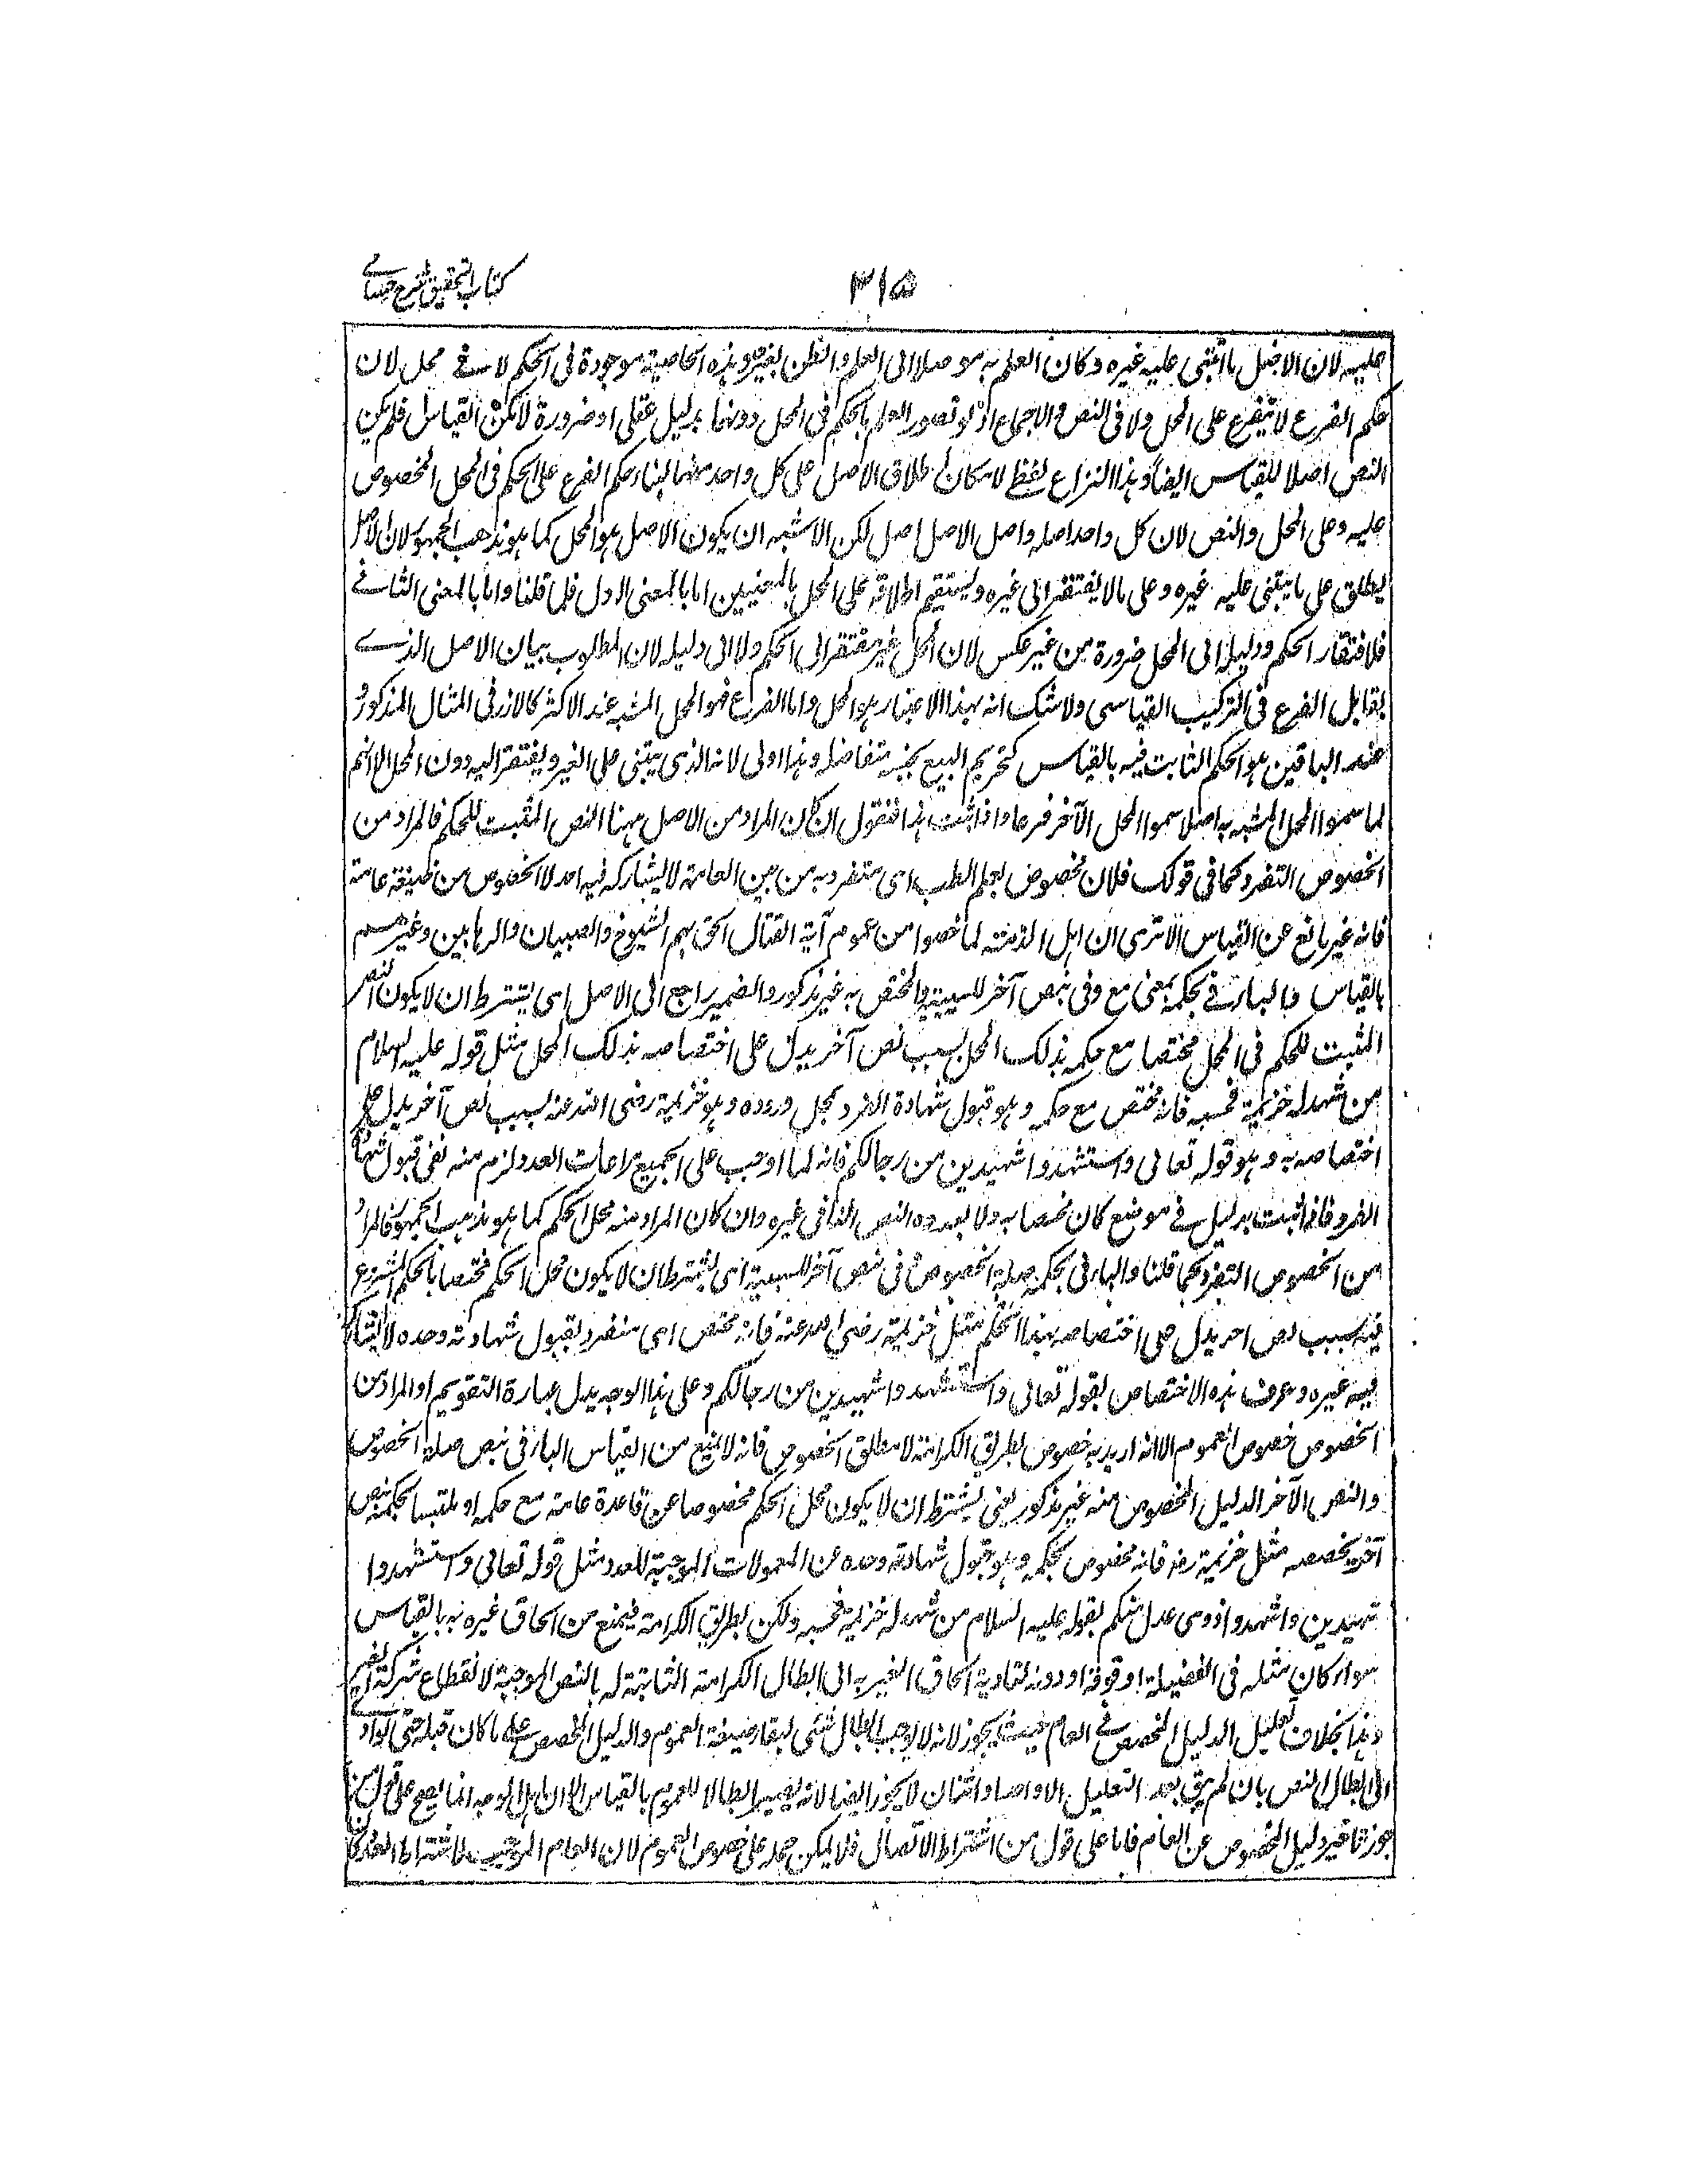 كتاب التحقيق شرح حسامي
٣١٥
عليه لان الاصل ما ابتنى عليه غيره وكان العلم به موصلا الى العلم والظن بغيره وهذه الخاصية موجودة فى الحكم لا فى محل لان
حكم الفرع لا يتفرع على المحل ولا فى النص والاجماع اذ لو تصور العلم بالحكم فى المحل دونهما بدليل عقلى او ضرورة لامكن القياس فلم يكن
النص اصلا للقياس ايضا وهذا النزاع لفظى لامكان اطلاق الاصل على كل واحد منهما لبناء حكم الفرع على الحكم فى المحل المخصوص
عليه وعلى المحل والنص لان كل واحد اصله واصل الاصل اصل لكن الاشبه ان يكون الاصل هو المحل كما هو مذهب الجمهور لان الاصل
يطلق على ما يبتنى عليه غيره وعلى ما لا يفتقر الى غيره ويستقيم اطلاقه على المحل بالمعنيين اما بالمعنى الاول فلما قلنا واما بالمعنى الثانى
فلافتقار الحكم ودليله الى المحل ضرورة من غير عكس لان المحل غير مفتقر الى الحكم ولا الى دليله لان المطلوب بيان الاصل الذى
يقابل الفرع فى التركيب القياسى ولا شك انه بهذا الاعتبار هو المحل واما الفرع فهو المحل المشبه عند الاكثر كالارز فى المثال المذكور و
عند الباقين هو الحكم الثابت فيه بالقياس كتحريم البيع بجنسه متفاضلا وهذا اولى لانه الذى يبتنى على الغير ويفتقر اليه دون المحل الا انهم
لما سموا المحل المشبه به اصلا سموا المحل الآخر فرعا واذا ثبت هذا فنقول ان كان المراد من الاصل ههنا النص المثبت للحكم فالمراد من
الخصوص التفرد كما فى قولك فلان مخصوص بعلم الطب اى متفرد به من بين العامة لا يشاركه فيه احد لا الخصوص من صيغة عامة
فانه غير مانع عن القياس الا ترى ان اهل الذمة لما خصوا من عموم آية القتال الحق بهم الشيوخ والصبيان والرهابين وغيرهم
بالقياس والباء فى بحكمه بمعنى مع وفى بنص آخر للسببية والمختص به غير مذكور والضمير راجع الى الاصل اى يشترط ان لا يكون النص
المثبت للحكم فى المحل مختصا مع حكمه بذلك المحل بسبب نص آخر يدل على اختصاصه بذلك المحل مثل قوله عليه السلام
من شهد له خزيمة فحسبه فانه مختص مع حكمه وهو قبول شهادة الفرد بمحل وروده وهو خزيمة رضى الله عنه بسبب نص آخر يدل على
اختصاصه به وهو قوله تعالى واستشهدوا شهيدين من رجالكم فانه لما اوجب على الجميع مراعات العدد لزم منه نفى قبول شهادة
الفرد فاذا ثبت بدليل فى موضع كان مختصا به ولا يعدوه النص النافى غيره وان كان المراد منه محل الحكم كما هو مذهب الجمهور فالمراد
من الخصوص التفرد كما قلنا والباء فى بحكمه صلة الخصوص وفى بنص آخر للسببية اى يشترط ان لا يكون محل الحكم مختصا بالحكم المشروع
فيه بسبب نص اخر يدل على اختصاصه بهذا الحكم مثل خزيمة رضى الله عنه فانه مختص اى منفرد بقبول شهادته وحده لا يشاركه
فيه غيره وعرف هذه الاختصاص بقوله تعالى واستشهدوا شهيدين من رجالكم وعلى هذا الوجه يدل عبارة التقويم او المراد من
الخصوص خصوص العموم الا انه اريد به خصوص بطريق الكرامة لا مطلق الخصوص فانه لا يمنع من القياس الباء فى بنص صلة الخصوص
والنص الآخر الدليل المخصوص منه غير مذكور يعنى يشترط ان لا يكون محل الحكم مخصوصا عن قاعدة عامة مع حكمه او ملتبسا بحكمه بنص
آخر يخصصه مثل خزيمة رضه فانه مخصوص بحكمه وهو قبول شهادته وحده عن العمومات الموجبة للعدد مثل قوله تعالى واستشهدوا
شهيدين واشهدوا ذوى عدل منكم لقوله عليه السلام من شهد له خزيمة فحسبه ولكن بطريق الكرامة فيمنع من الحاق غيره به بالقياس
سواء كان مثله فى الفضيلة او فوقه او دونه لتادية الحاق الغير به الى ابطال الكرامة الثابتة له بالنص الموجبة لانقطاع شركة الغير
وهذا بخلاف تعليل الدليل المخصص فى العام حيث يجوز لانه لا يوجب ابطال شئى لبقاء صيغة العموم والدليل المخصص على ما كان قبله حتى لو ادى
الى ابطال النص بان لم يبق بعد التعليل الا واحد او اثنان لا يجوز ايضا لانه يصير ابطالا للعموم بالقياس الا ان هذا الوجه انما يصح على قول من
جوز تاخير دليل الخصوص عن العام فاما على قول من اشتراط الاتصال فلا يمكن حمله على خصوص العموم لان العام الموجب لاشتراط العدد كان